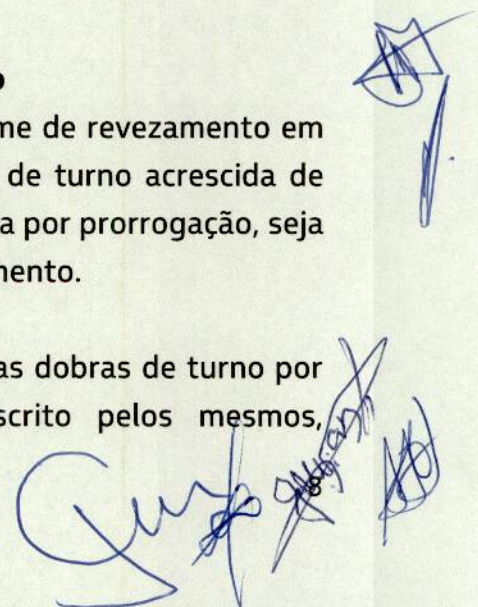 o
me de revezamento em
de turno acrescida de
a por prorrogação, seja
mento.
as dobras de turno por
scrito pelos mesmos,
8